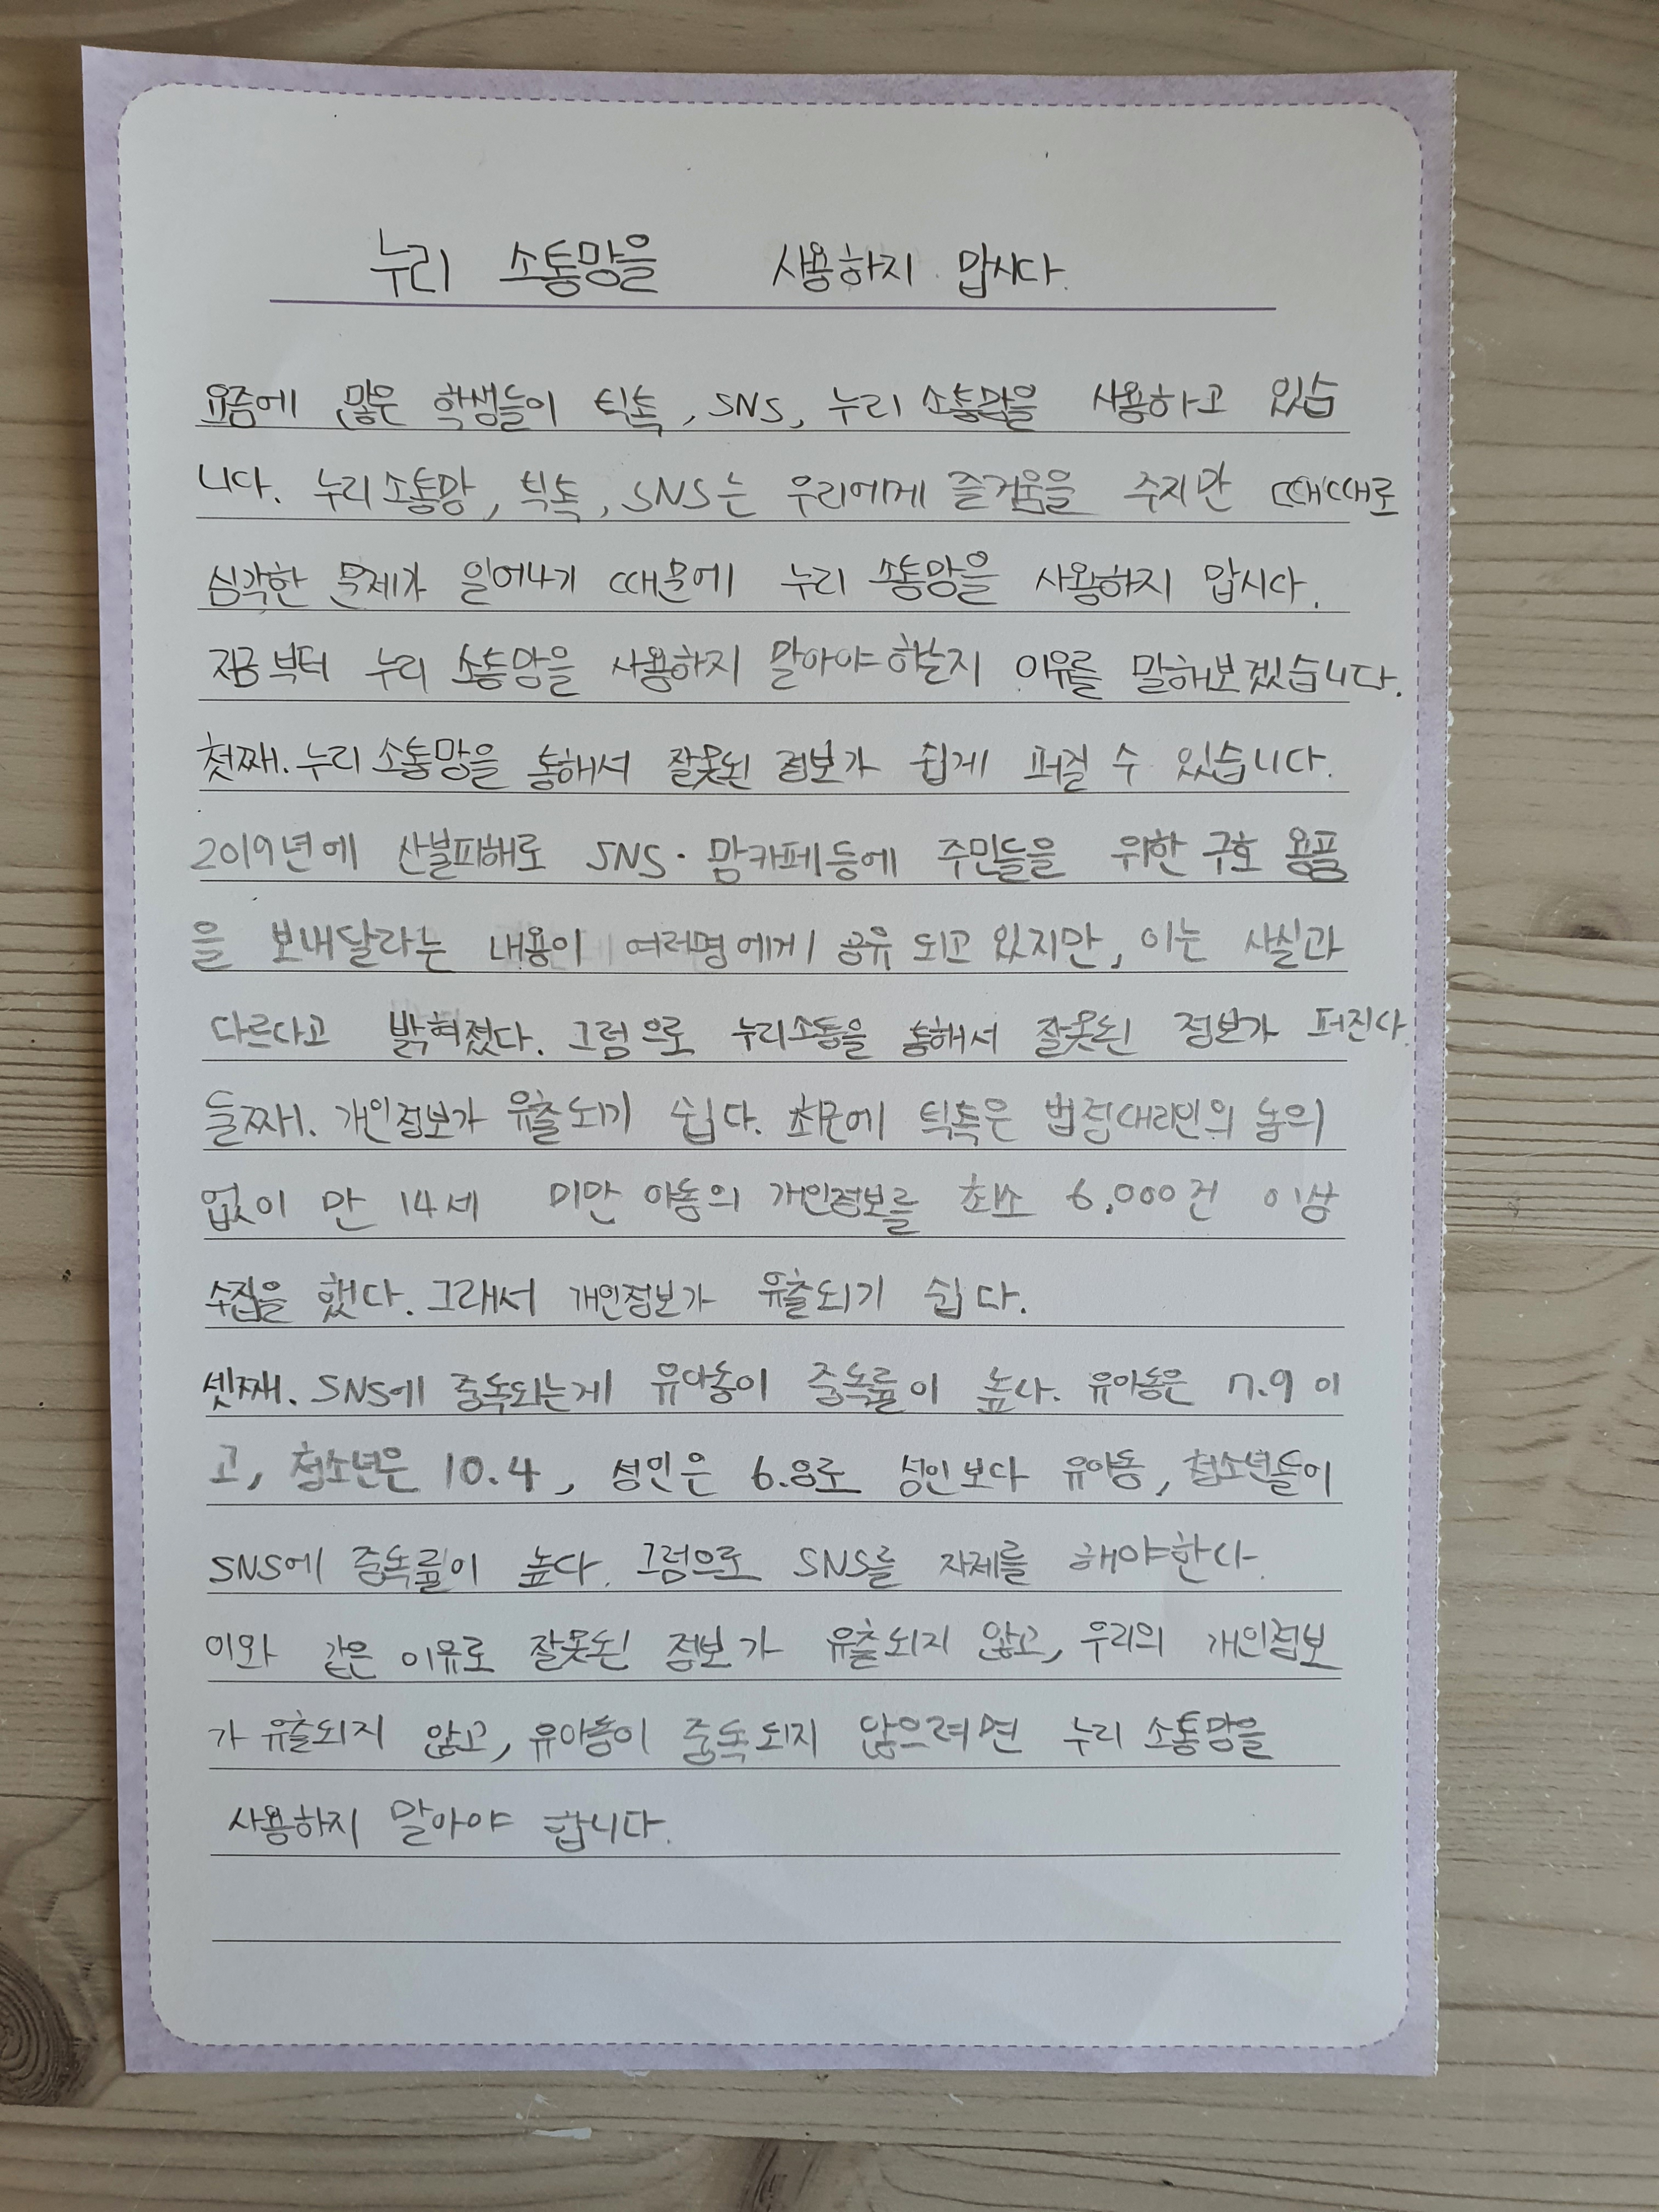 누리 소통망을 사용하지 맙시다.
요즘에 많은 학생들이 틱톡, SNS, 누리 소통망을 사용하고 있습
니다. 누리소통망, 틱톡, SNS는 우리에게 즐거움을 주지만 때때로
심각한 문제가 일어나기 때문에 누리 소통망을 사용하지 맙시다.
지금부터 누리 소통망을 사용하지 말아야할지 이유를 말해보겠습니다.
첫째. 누리 소통망을 통해서 잘못된 정보가 쉽게 퍼질 수 있습니다.
2019년에 산불피해로 SNS·맘카페등에 주민들을 위한 구호 용품
을 보내달라는 내용이 여러명에게 공유 되고 있지만, 이는 사실과
다르다고 밝혀졌다. 그럼으로 누리소통을 통해서 잘못된 정보가 퍼진다.
둘째. 개인정보가 유출되기 쉽다. 최근에 틱톡은 법정대리인의 동의
없이 만 14세 미만 아동의 개인정보를 최소 6,000건 이상
수집을 했다. 그래서 개인정보가 유출되기 쉽다.
셋째. SNS에 중독되는게 유아동이 중독률이 높다. 유아동은 7.9 이
고, 청소년은 10.4, 성인은 6.8로 성인보다 유아동, 청소년들이
SNS에 중독률이 높다. 그럼으로 SNS를 자제를 해야한다.
이와 같은 이유로 잘못된 정보가 유출되지 않고, 우리의 개인정보
가 유출되지 않고, 유아동이 중독되지 않으려면 누리 소통망을
사용하지 말아야 합니다.